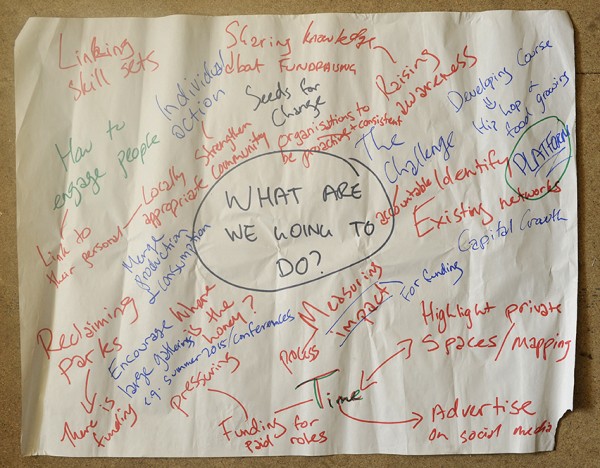 Linking
skill sets
Individual
action
Sharing knowledge
about FUNDRAISING
Raising
awareness
Developing Course
Hip hop &
food growing
PLATFORM
How to
engage people
Seeds for
Change
Strengthen
community organisations to
be proactive + consistent
The
Challenge
accountable
Identify
Existing networks
Capital Growth
Link to
their personal
Locally
appropriate
Merge
production
& consumption
WHAT ARE
WE GOING TO
DO?
Measuring
impact
process
For funding
Reclaiming
parks
There is
funding
Encourage
large gatherings
eg. summer 2015/conferences
Where
is the
money?
pressuring
Funding for
paid roles
Time
Highlight private
Spaces/mapping
Advertise
on social media